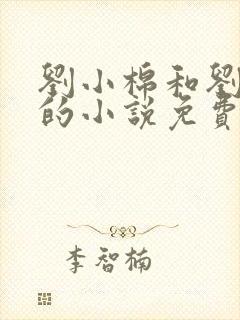 劉小棉和劉
的小說免費
李智楠